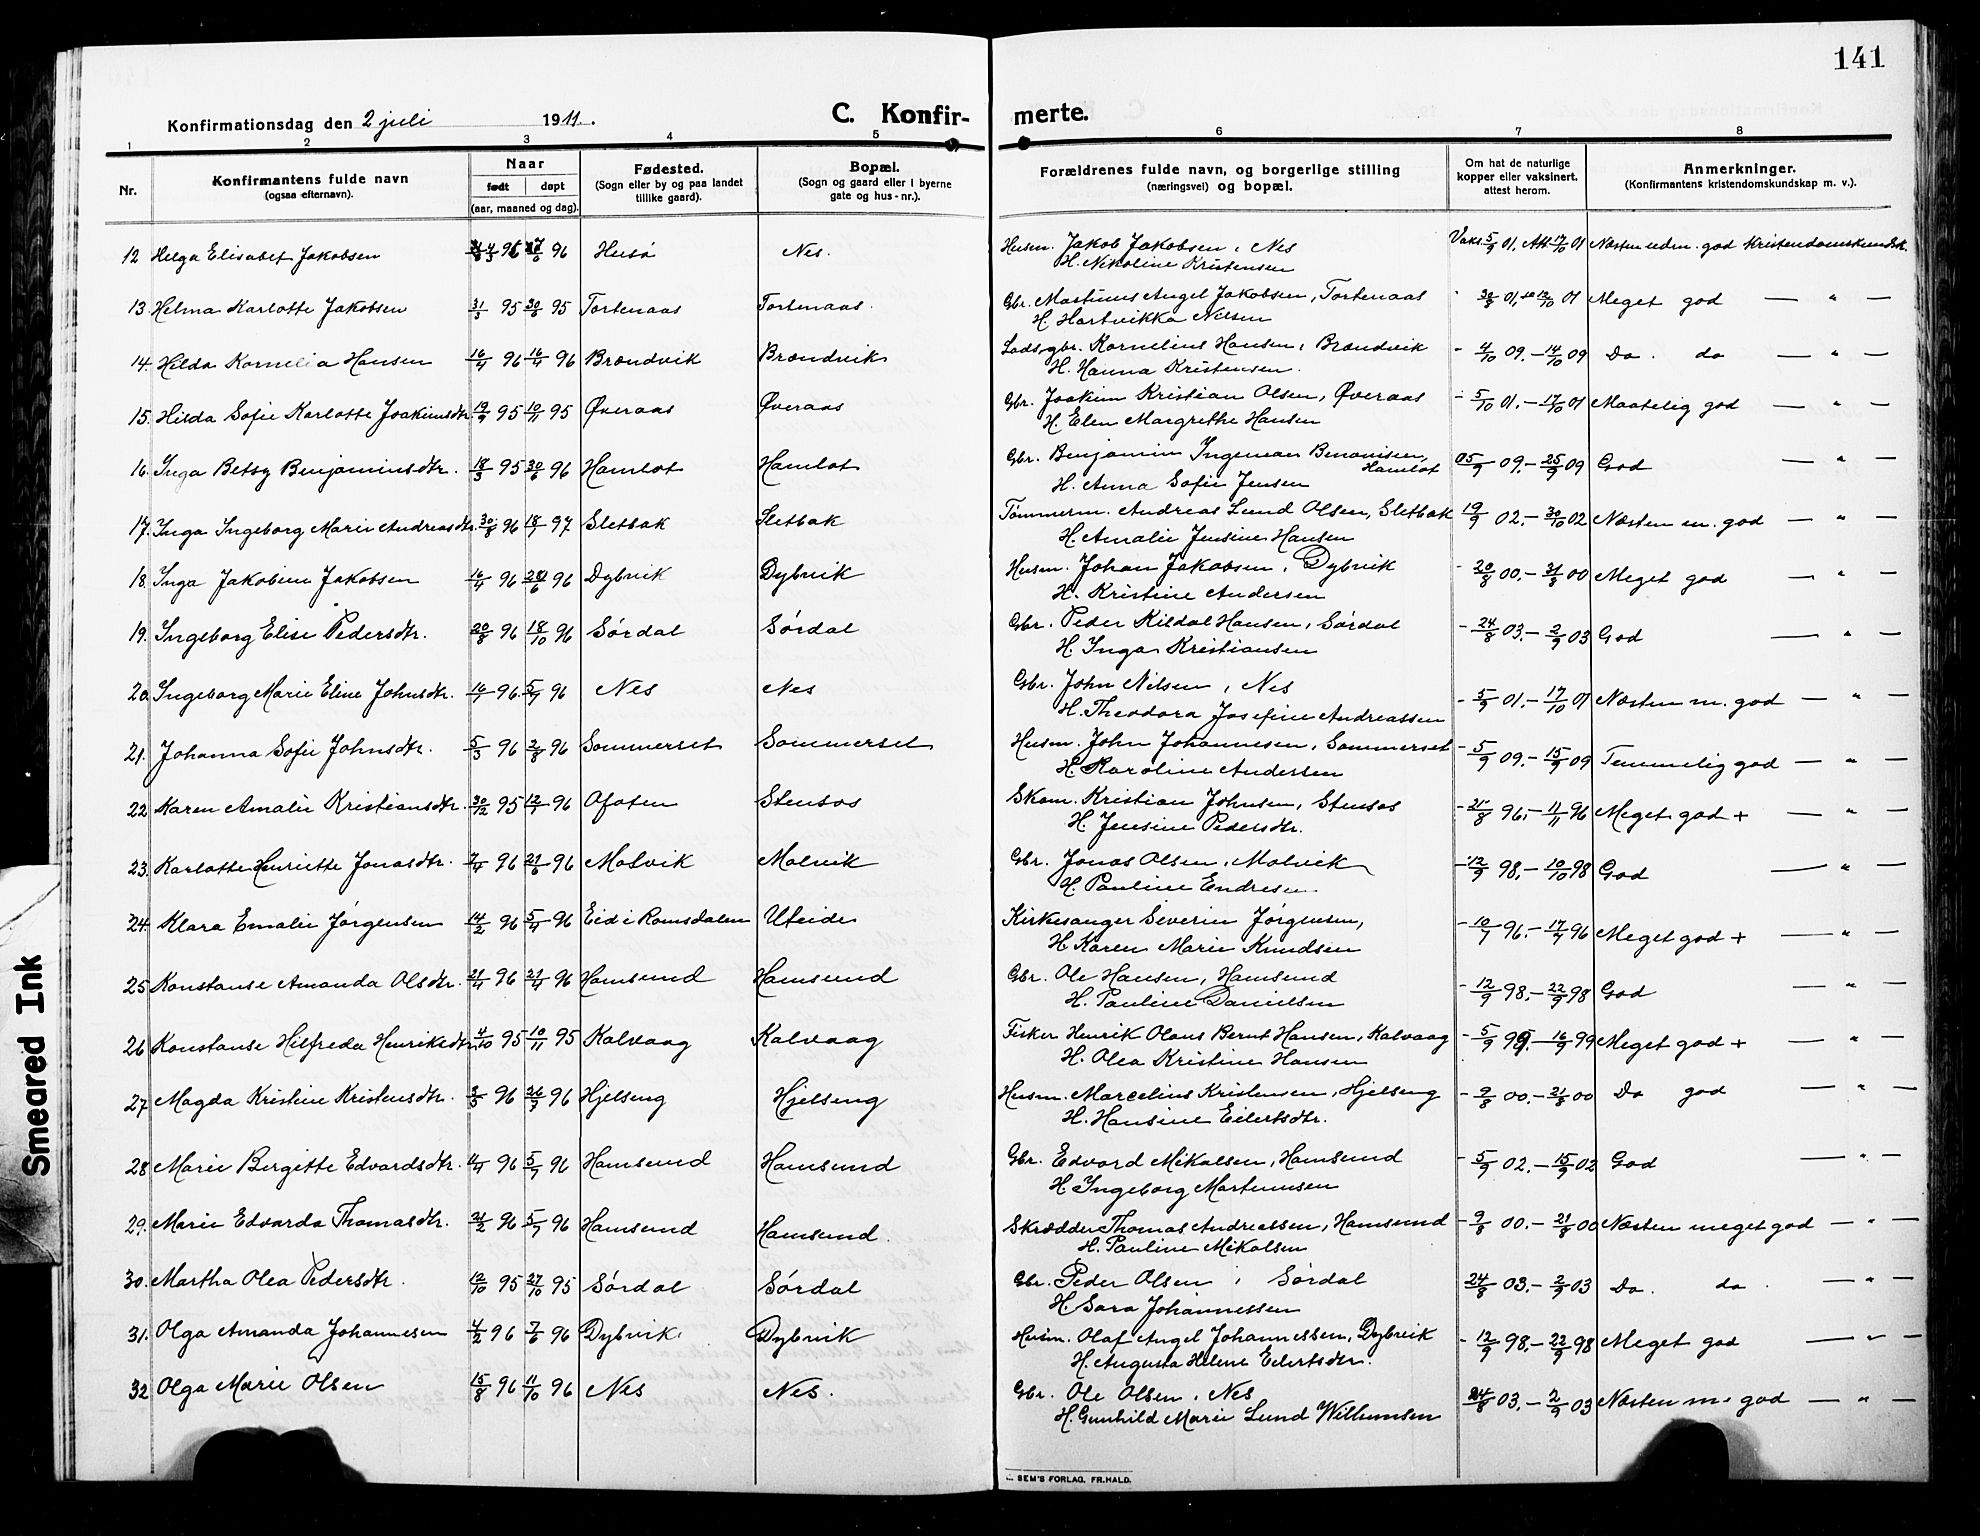 141
Konfirmationsdag den 2 juli 1911.
C. Konfir- merte.
1 2 3 4 5 6 7 8
Nr.
Konfirmantens fulde navn
(ogsaa efternavn).
Naar
født døpt
(aar, maaned og dag).
Fødested.
(Sogn eller by og paa landet
tillike gaard).
Bopæl.
(Sogn og gaard eller i byerne
gate og hus-nr.).
Forældrenes fulde navn, og borgerlige stilling
(næringsvei) og bopæl.
Om hat de naturlige
kopper eller vaksinert.
attest herom.
Anmerkninger.
(Konfirmantens kristendomskundskap m. v.).
12 Helga Elisabet Jakobsen 96 96 Husö Nes. Husm. Jakob Jakobsen, Nes Vaks. 5/9 01, Att. 17/10 01 Næsten udm. god Kristendomskundsk.
H. Nikoline Kristensen
13. Helma Karlotte Jakobsen 31/3 95 30/6 95 Tortenaas Tortenaas. Gbr. Martinus Angel Jakobsen, Tortenaas 01, 01 Meget god — " —
H. Hartvikka Nilsen
14. Hilda Kornelia Hansen 16/4 96 16/4 96 Brændvik Brændvik Gbr. Kornelius Hansen, Brændvik - 4/10 09. - 14/10 09 Do. do — " —
H. Hanna Kristensen.
15. Hilda Sofie Karlotte Joakimsdtr. 19/9 95 10/11 95 Øveraas Øveraas Gbr. Joakim Kristian Olsen, Øveraas - 5/10 01. - 17/10 01 Maatelig god — " —
H. Elen Margrethe Hansen
16. Inga Betsy Benjaminsdtr. 18/3 95 30/6 96 Hamlot Hamlot Gbr. Benjamin Ingeman Benonisen, Hamlot 09. - 25/9 09 God — " —
H. Anna Sofie Jensen
17. Inga Ingeborg Marie Andreasdtr. 30/8 96 18/7 97 Sletbak Sletbak Tømmerm. Andreas Lund Olsen, Sletbak 19/9 02. - 30/10 02 Næsten m. god — " —
H. Amalie Jensine Hansen
18. Inga Jakobine Jakobsen 16/4 96 96 Dybvik Dybvik Husm. Johan Jakobsen, Dybvik - 20/8 00. - 31/8 00 Meget god — " —
H. Kristine Andersen
19. Ingeborg Elise Pedersdtr. 20/8 96 18/10 96 Sørdal Sørdal Gbr. Peder Kildal Hansen, Sørdal - 24/8 03. - 2/9 03 God — " —
H. Inga Kristiansen
20. Ingeborg Marie Eline Johnsdtr. 96 5/7 96 Nes Nes Gbr. John Nilsen, Nes - 5/9 01. - 17/10 01 Næsten m. god — " —
H. Theodora Josefine Andreassen
21. Johanna Sofie Johnsdtr. 5/3 96 2/8 96 Sommerset Sommerset Husm. John Johannesen, Sommerset - 5/9 09. - 15/9 09 Temmelig god — " —
H. Karoline Andersen
22 Karen Amalie Kristiansdtr. 30/12 95 12/7 96 Ofoten Stensos Skom. Kristian Johnsen, Stensos - 21/8 96. - 11/11 96 Meget god + — " —
H. Jensine Pedersdtr.
23. Karlotte Henriette Jonasdtr. 7/4 96 21/6 96 Molvik Molvik Gbr. Jonas Olsen, Molvik - 12/9 98. - 10/10 98 God — " —
H. Pauline Endresen
24. Klara Emalie Jørgensen 14/2 96 5/4 96 Eid i Romsdalen Uteide Kirkesanger Severin Jørgensen, - 10/7 96. - 17/7 96 Meget god + — " —
H. Karen Marie Knudsen
25 Konstanse Amanda Olsdtr. 21/4 96 21/4 96 Hamsund Hamsund Gbr. Ole Hansen, Hamsund - 12/9 98. - 22/9 98 God — " —
H. Pauline Danielsen
26 Konstanse Hilfreda Henriksdtr. 4/10 95 10/11 95 Kalvaag Kalvaag Fisker Henrik Olaus Bernt Hansen, Kalvaag - 5/9 99. - 16/9 99 Meget god + — " —
H. Olea Kristine Hansen
27 Magda Kristine Kristensdtr. 3/5 96 26/7 96 Hjelseng Hjelseng Husm. Marcelius Kristensen, Hjelseng - 9/8 00. - 21/8 00 Do god — " —
H. Hansine Eilertsdtr.
28 Marie Bergitte Edvardsdtr. 96 5/7 96 Hamsund Hamsund Gbr. Edvard Mikalsen, Hamsund - 5/9 02. - 15/9 02 God — " —
H. Ingeborg Martinusen
29. Marie Edvarda Thomasdtr. 21/2 96 5/7 96 Hamsund Hamsund. Skrædder Thomas Andreassen, Hamsund - 9/8 00. - 21/8 00 Næsten meget god — " —
H. Pauline Mikalsen
30. Martha Olea Pedersdtr. 12/10 95 27/10 95 Sørdal Sørdal Gbr. Peder Olsen, Sørdal 24/8 03. - 2/9 03 Do. do. — " —
H. Sara Johannessen
31. Olga Amanda Johannesen 4/2 96 7/6 96 Dybvik Dybvik Husm. Olaf Angel Johannessen, Dybvik - 12/9 98. - 22/9 98 Meget god — " —
H. Augusta Helene Eilertsdtr.
32 Olga Marie Olsen 15/8 96 11/10 96 Nes Nes. Gbr. Ole Olsen, Nes 24/8 03. - 2/9 03 Næsten m. god — " —
H. Gunhild Marie Lund Wilhumsen
SEM'S FORLAG, FR.HALD.
Smeared Ink